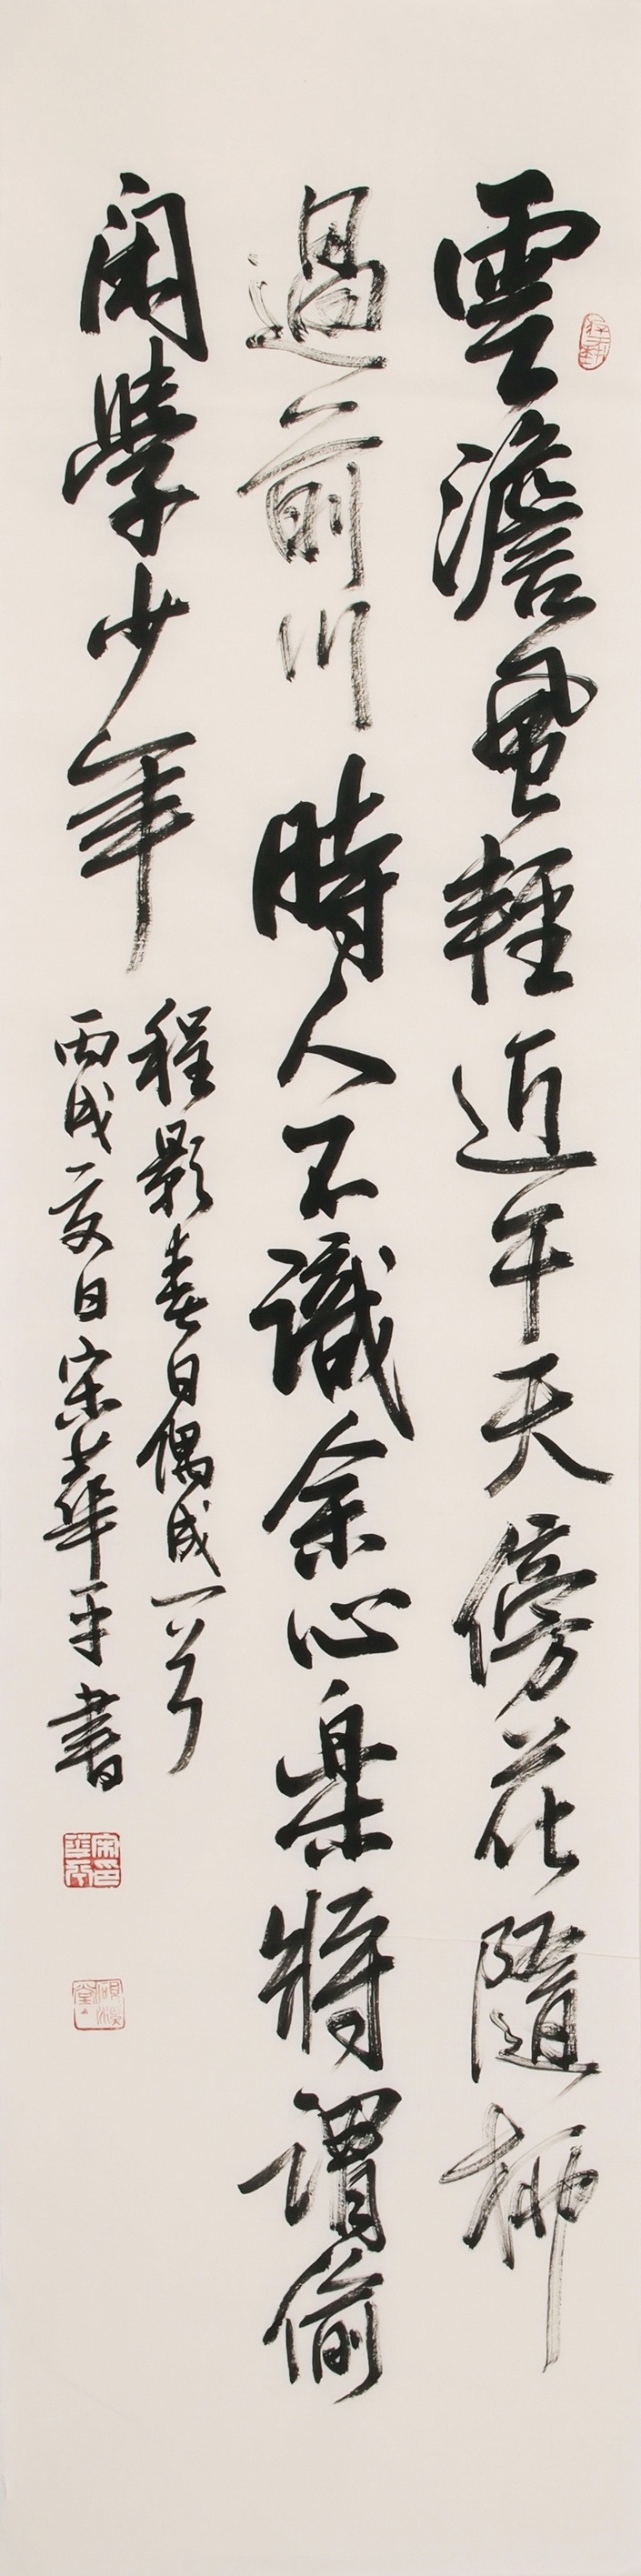 雲澹風輕近午天傍花隨柳
過前川時人不識余心楽将謂偷
閑學少年
程影春日偶成一首
丙戌夏日宋華平書
宋華平印